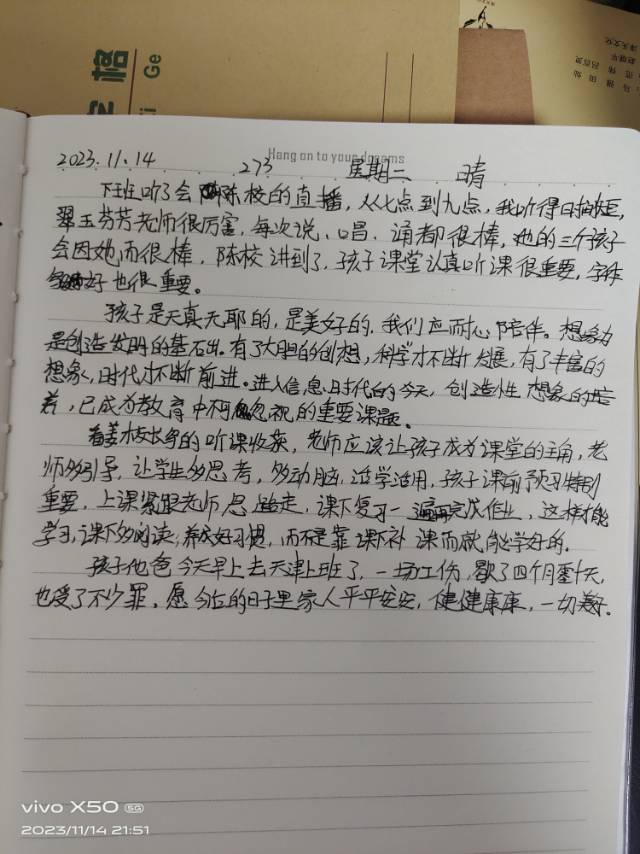 格
Ge
Hang on to your dreams
2023.11.14 273 星期二 晴
下班听了会陈校的直播,从七点到九点,我听得
翠玉芬芳老师很厉害,每次说、唱、诵都很棒,她的三个孩子
会因她而很棒,陈校讲到了,孩子课堂认真听课很重要,字体
好也很重要。
孩子是天真无耶的,是美好的,我们应耐心陪伴。想象力
是创造发明的基石出。有了大胆的创想,科学才不断发展,有了丰富的
想象,时代才不断前进。进入信息时代的今天,创造性想象的培
养,已成为教育中不可忽视的重要课题。
看姜校长的听课收获,老师应该让孩子成为课堂的主角,老
师多引导,让学生多思考,多动脑,活学活用,孩子课前预习特别
重要,上课紧跟老师思路走,课下复习一遍再完成作业,这样才能
学习,课下多阅读,养成好习惯,而不是靠课下补课而就能学好的.
孩子他爸今天早上去天津上班了,一场工伤,歇了四个月零十天,
也受了不少罪,愿今后的日子里家人平平安安,健健康康,一切美好.
vivo X50 5G
2023/11/14 21:51